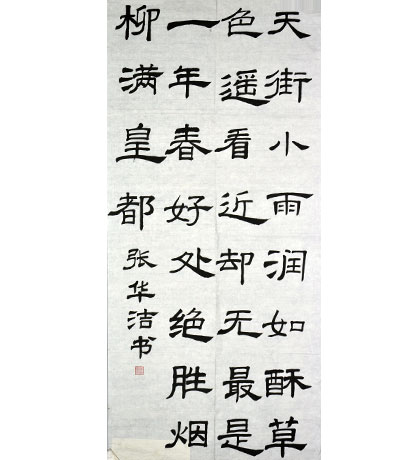 天街小雨润如酥草
色遥看近却无最是
一年春好处绝胜烟
柳满皇都
张华洁书